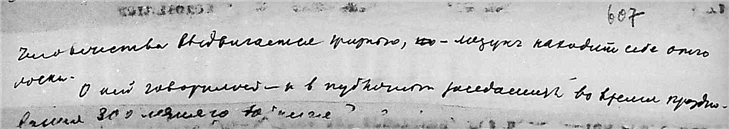 607
человечества выдвигается криком, но лозунг находит себе отго
лоски.
О ней говорилось – и в публичных заседаниях во время праздно-
вания 300 летнего